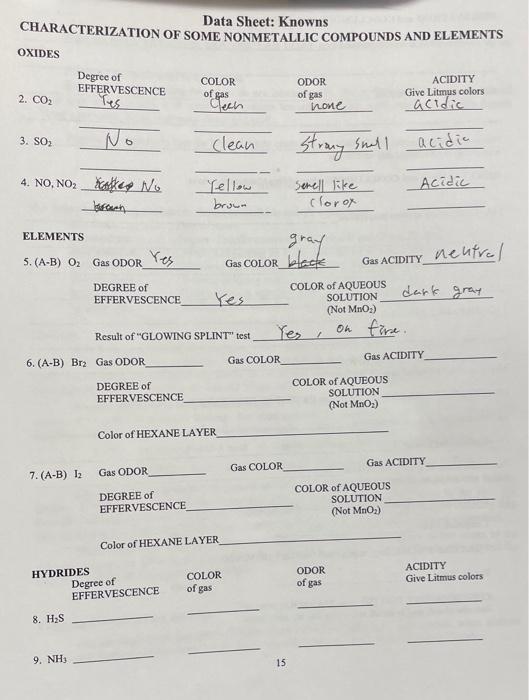 Data Sheet: Knowns
CHARACTERIZATION OF SOME NONMETALLIC COMPOUNDS AND ELEMENTS
OXIDES
Degree of EFFERVESCENCE COLOR of gas ODOR of gas ACIDITY Give Litmus colors
2. CO₂ Yes none acidic
3. SO₂ No Clean Strong Smell acidic
4. NO, NO₂ No Yellow smell like Acidic
brown Clorox
ELEMENTS
gray
5. (A-B) O₂ Gas ODOR Yes Gas COLOR black Gas ACIDITY neutral
DEGREE of EFFERVESCENCE Yes COLOR of AQUEOUS SOLUTION (Not MnO₂) dark gray
Result of "GLOWING SPLINT" test Yes, on fire.
6. (A-B) Br₂ Gas ODOR Gas COLOR Gas ACIDITY
DEGREE of EFFERVESCENCE COLOR of AQUEOUS SOLUTION (Not MnO₂)
Color of HEXANE LAYER
7. (A-B) I₂ Gas ODOR Gas COLOR Gas ACIDITY
DEGREE of EFFERVESCENCE COLOR of AQUEOUS SOLUTION (Not MnO₂)
Color of HEXANE LAYER
HYDRIDES
Degree of EFFERVESCENCE COLOR of gas ODOR of gas ACIDITY Give Litmus colors
8. H₂S
9. NH₃
15